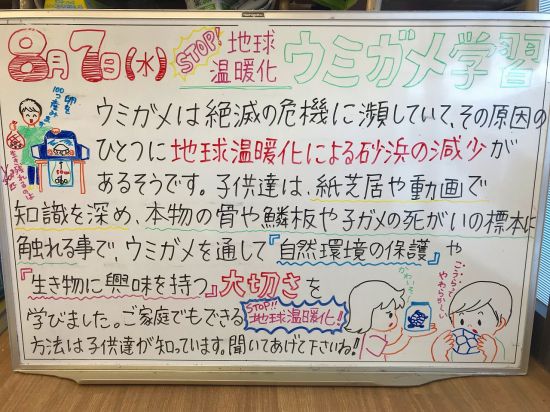 8月7日(水) STOP! 地球温暖化 ウミガメ学習
ウミガメは絶滅の危機に瀕していて、その原因の
ひとつに地球温暖化による砂浜の減少が
あるそうです。子供達は、紙芝居や動画で
知識を深め、本物の骨や鱗板や子ガメの死がいの標本に
触れる事で、ウミガメを通して『自然環境の保護』や
『生き物に興味を持つ』大切さを
学びました。ご家庭でもできる STOP!! 地球温暖化!
方法は子供達が知っています。聞いてあげて下さいね!!
かわいそう
こうらって
やわらかい